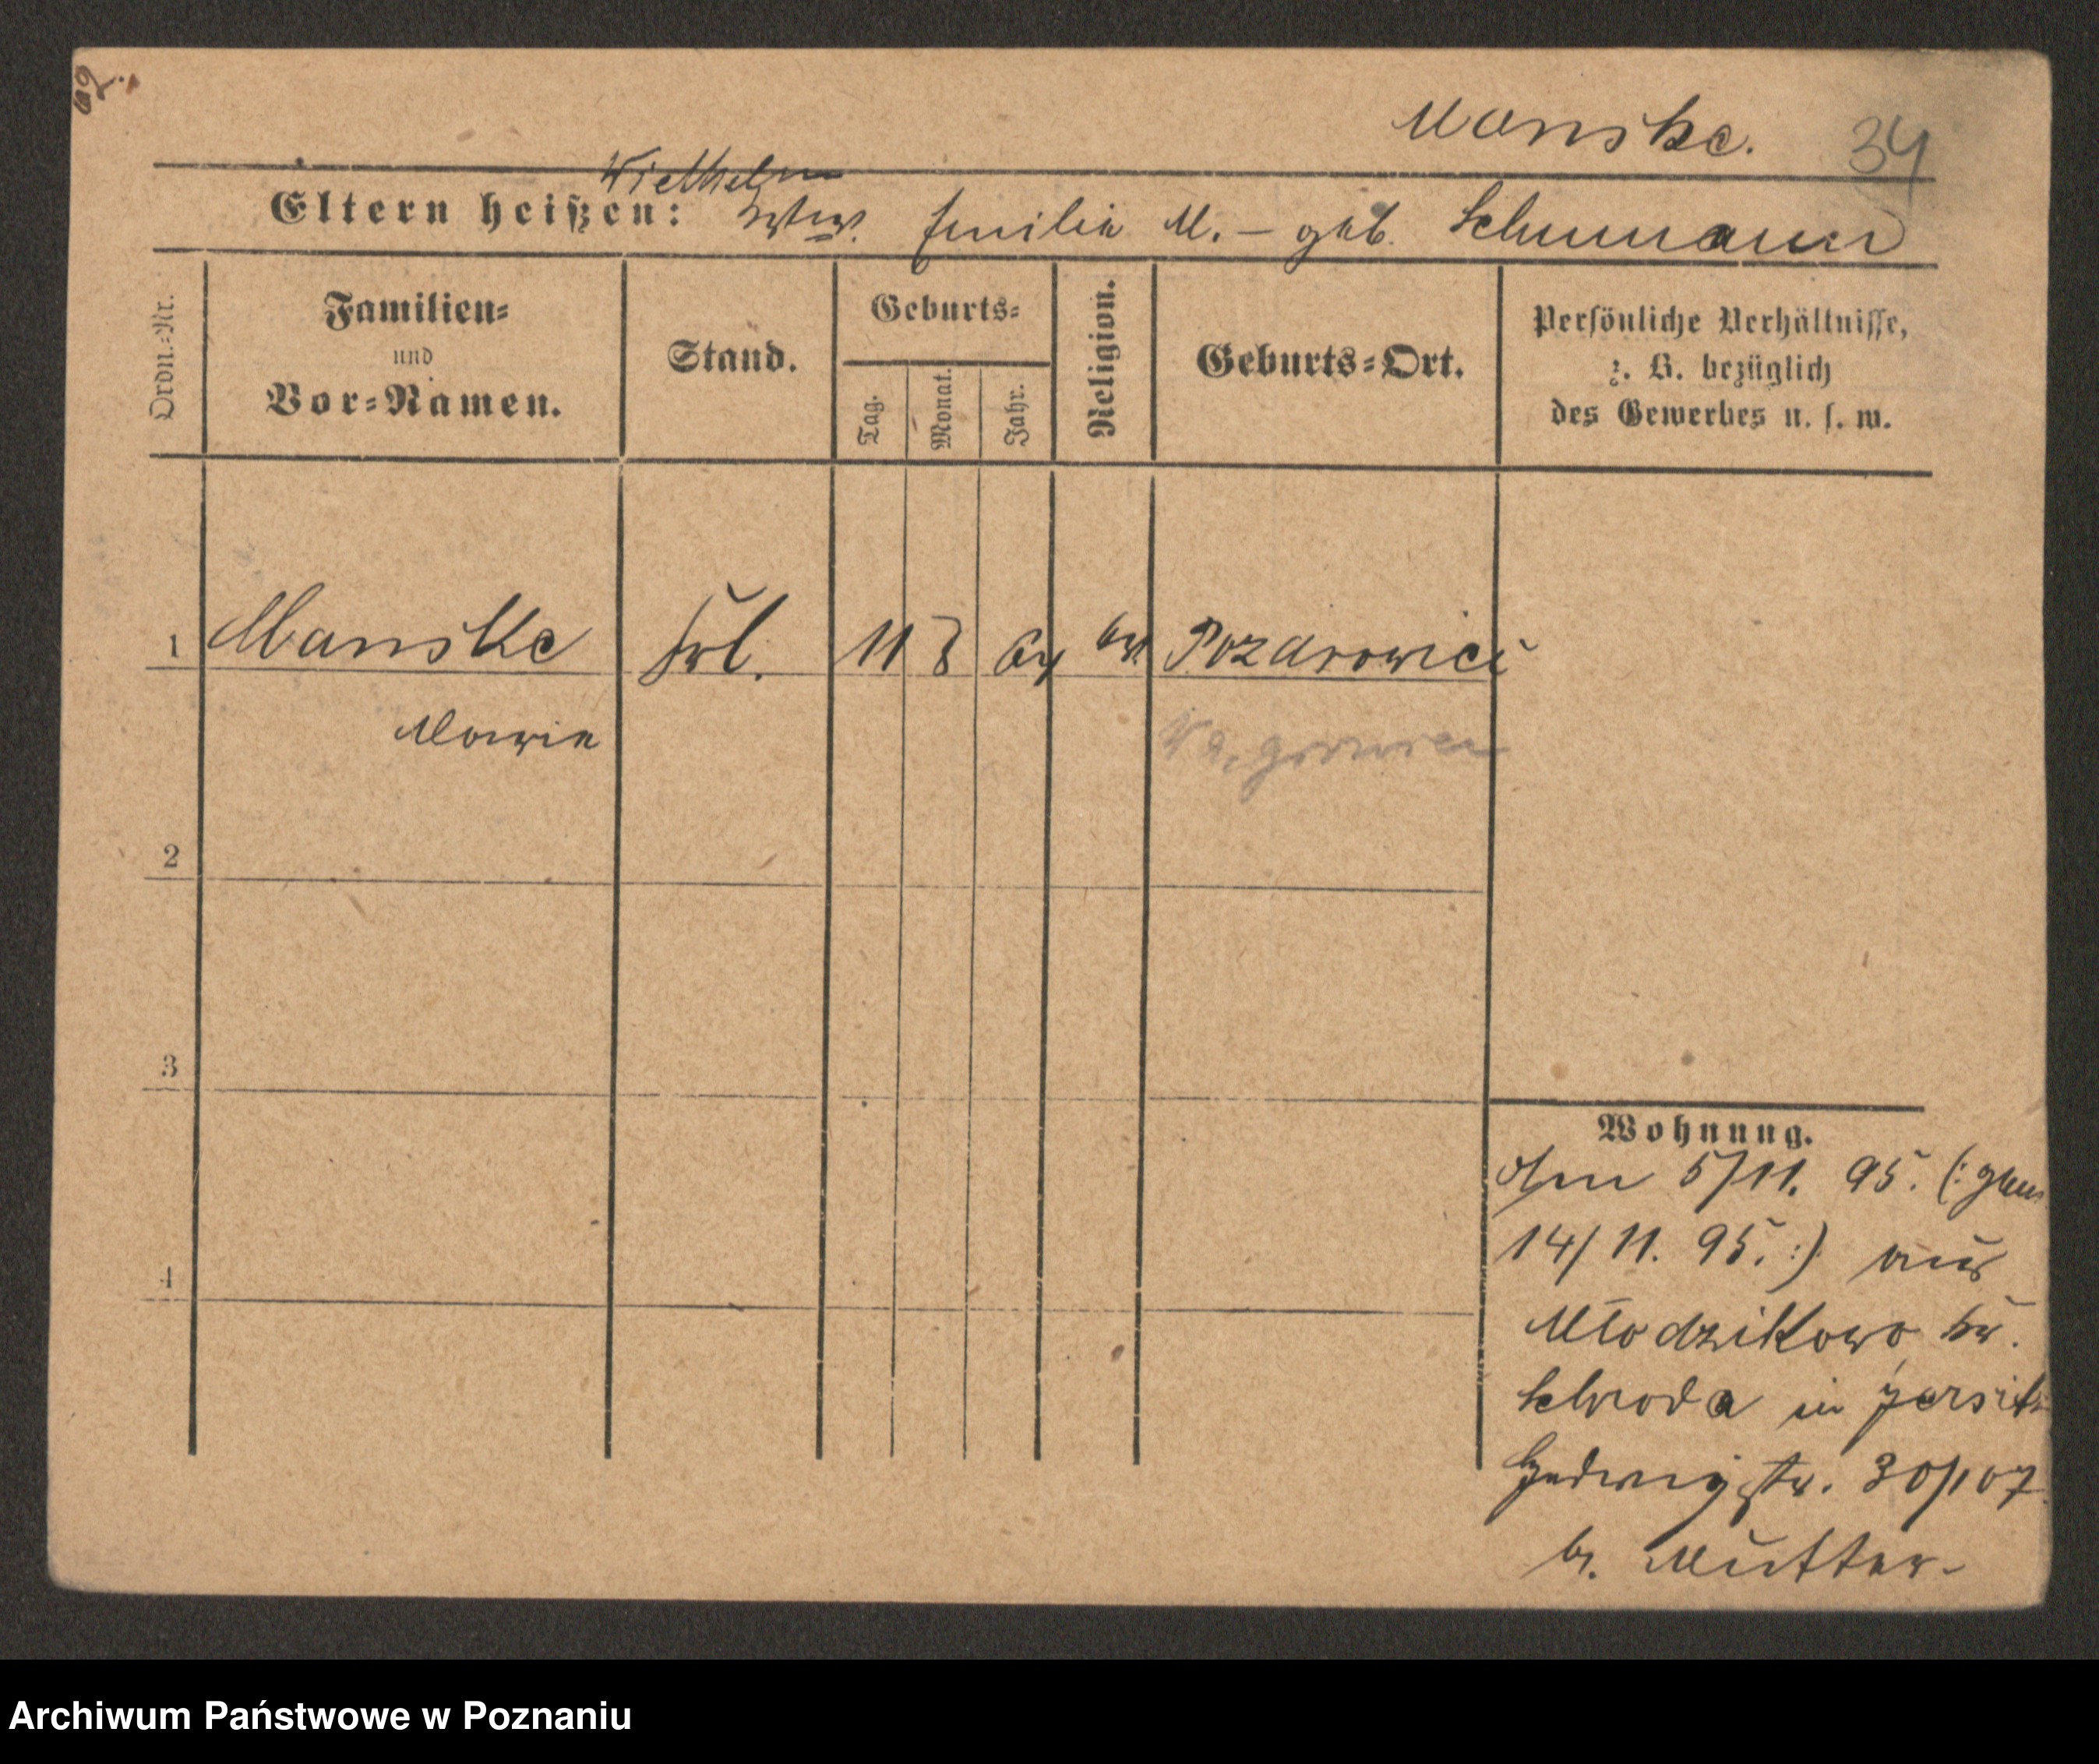 Manske.
34
Wielhelm
Eltern heißen: Wtwe. Emilie M. – geb. Schumann
Ordn.-Nr.
Familien-
und
Vor-Namen.
Stand.
Geburts-
Tag.
Monat.
Jahr.
Religion.
Geburts-Ort.
Persönliche Verhältnisse,
z. B. bezüglich
des Gewerbes u. s. w.
1 Manske Frl. 11 8 64 ev. Pozarowice
Marie
2
3
4
Wohnung.
Am 5/11. 95. (: gem
14/11. 95. :) aus
Mlodzikowo Kr.
Schroda in Jersitz
Hedwigstr. 30/107
b. Mutter.
Archiwum Państwowe w Poznaniu